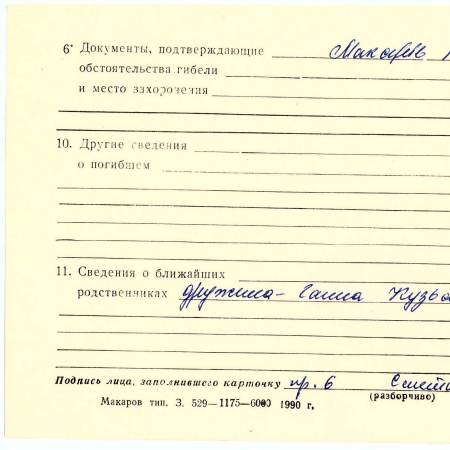 6 Документы, подтверждающие
обстоятельства гибели
и место захоронения
10. Другие сведения
о погибшем
11. Сведения о ближайших
родственниках дружина - Ганна
Подпись лица, заполнившего карточку пр. 6
(разборчиво)
Макаров тип. З. 529—1175—6000 1990 г.